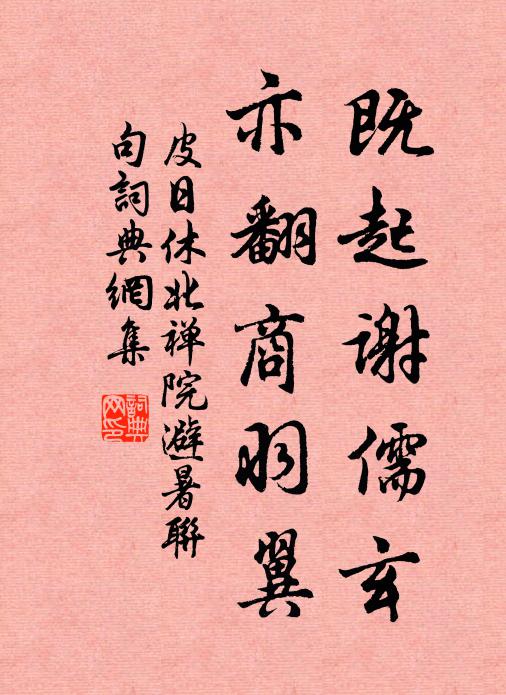 既起谢儒玄
亦翻商羽翼
皮日休北禅院避暑聯
句詞典網集
詞典
网印